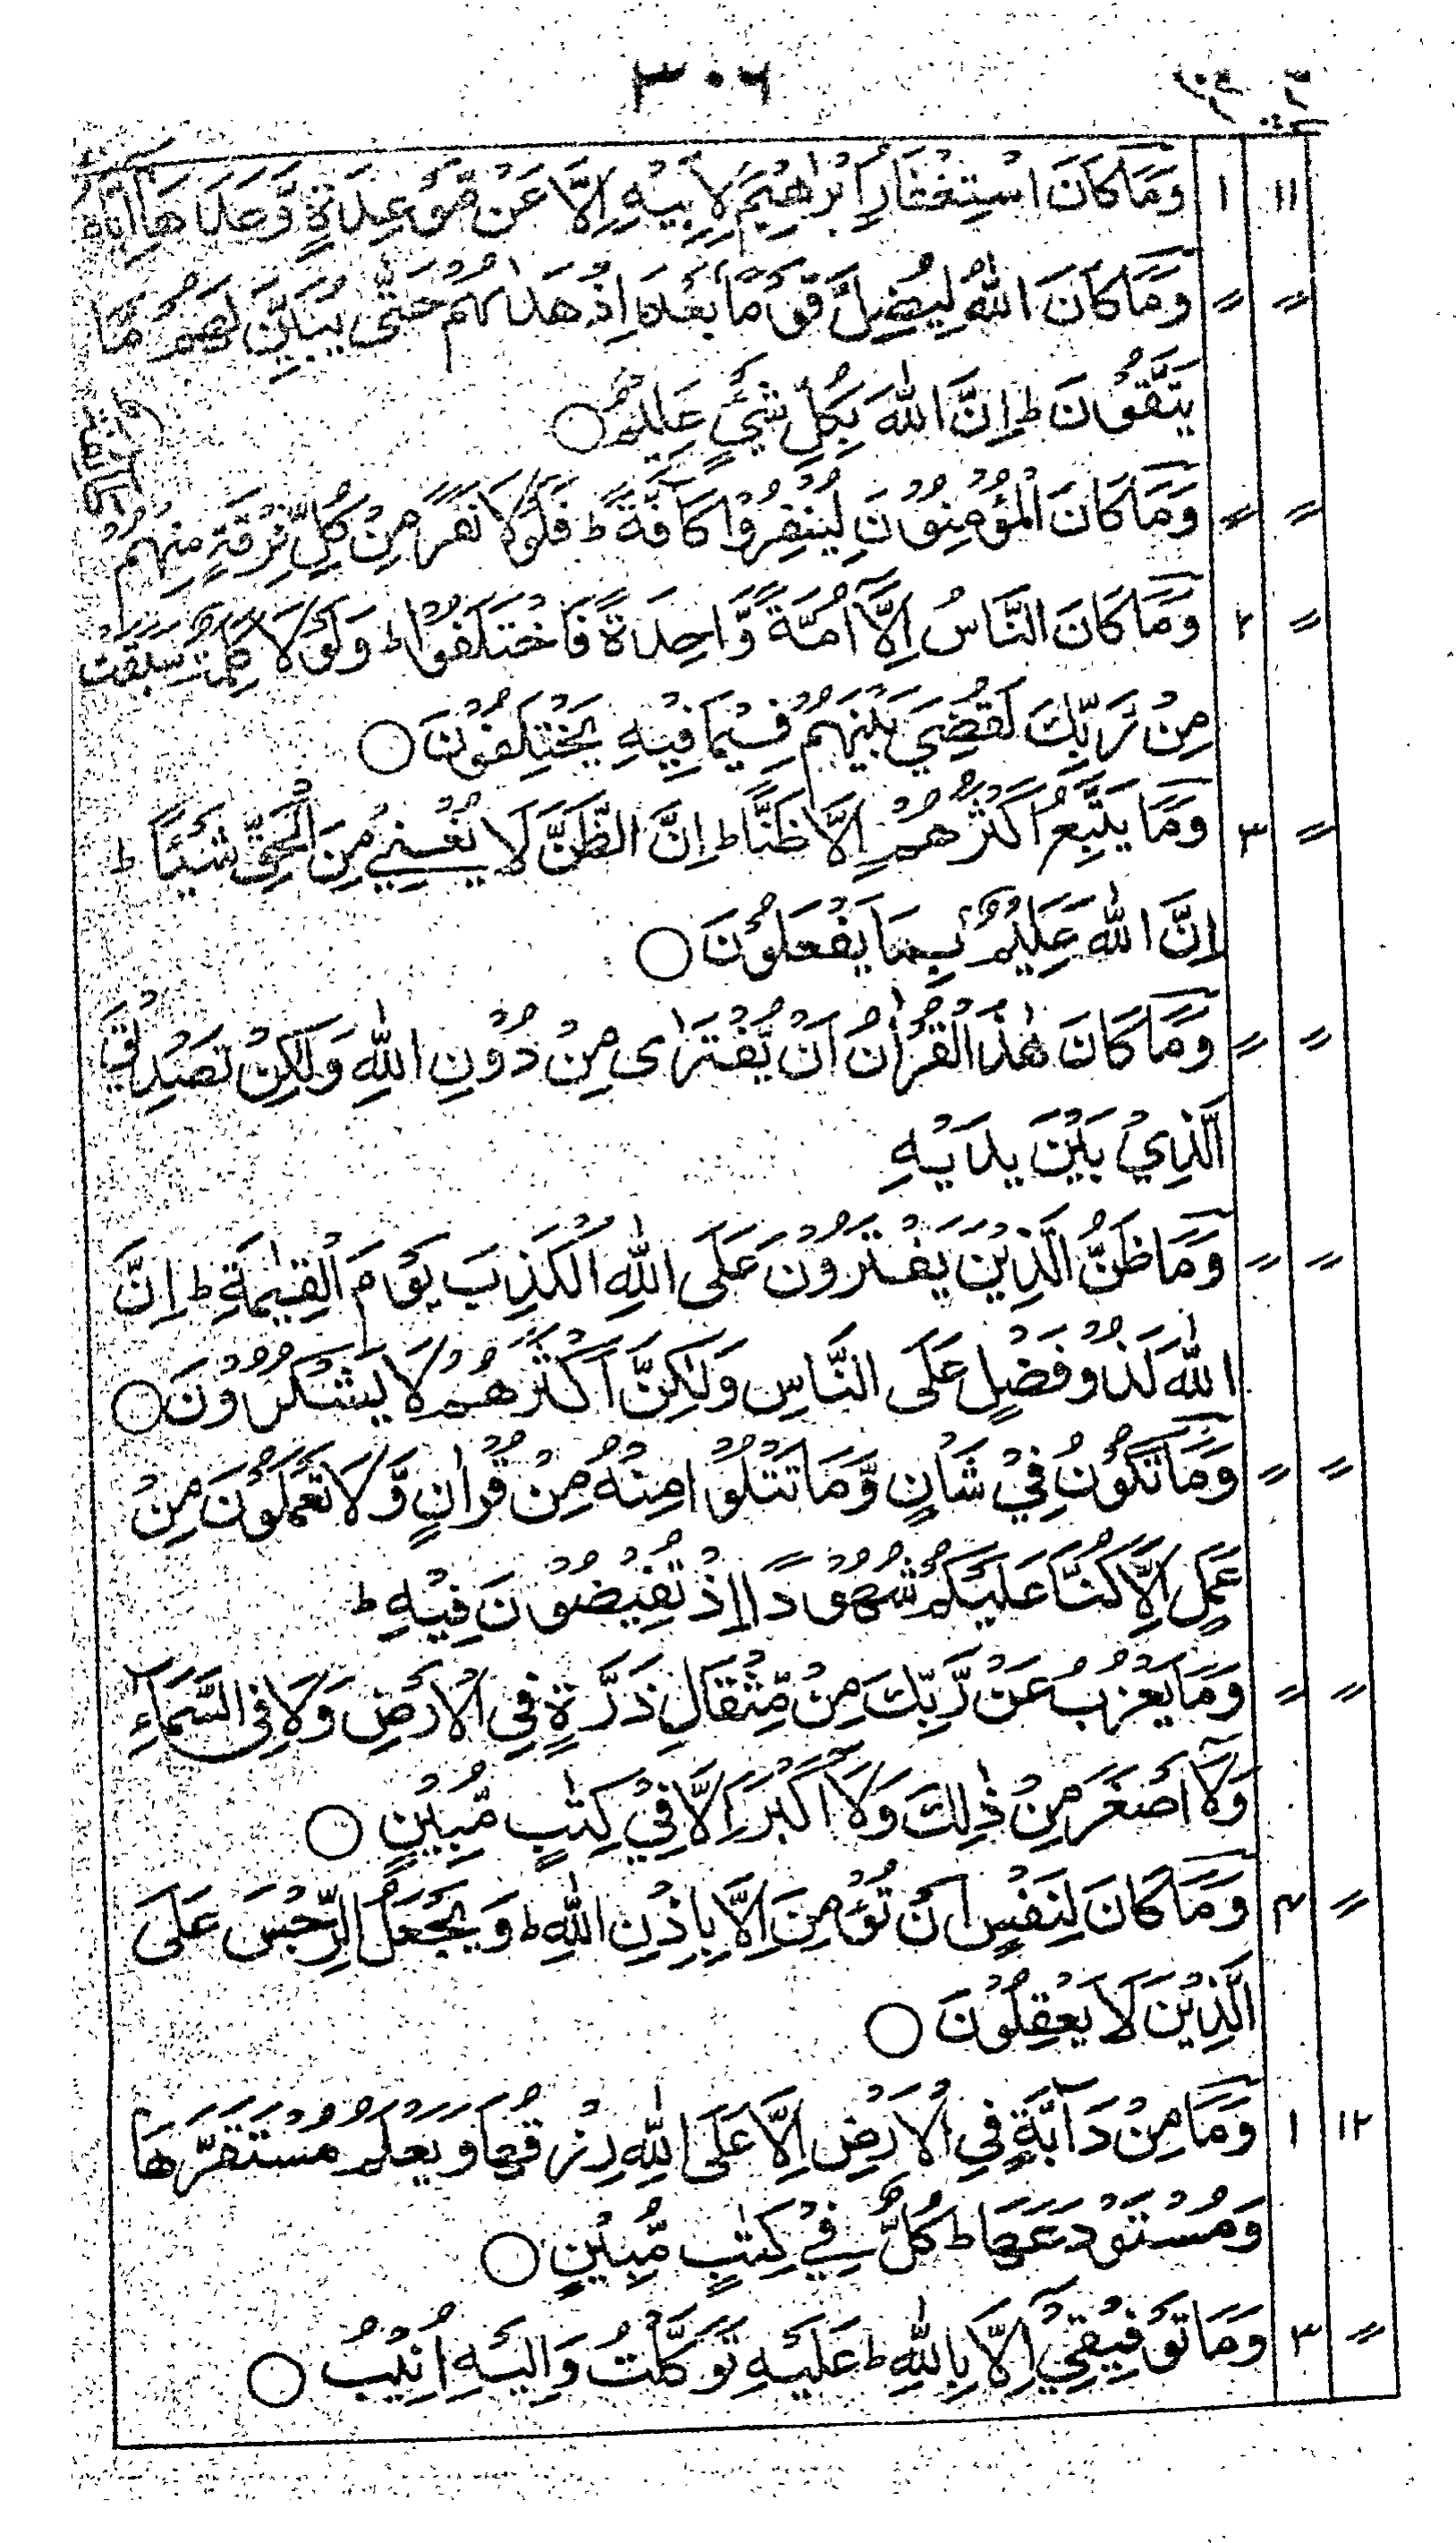 ٣٠٦
١١ ١ وَمَا كَانَ اسْتِغْفَارُ اِبْرٰهِيْمَ لِاَبِيْهِ اِلَّا عَنْ مَّوْعِدَةٍ وَّعَدَهَا اِيَّاهُ
〃 〃 وَمَا كَانَ اللّٰهُ لِيُضِلَّ قَوْمًا بَعْدَ اِذْ هَدٰىهُمْ حَتّٰى يُبَيِّنَ لَهُمْ مَّا
يَتَّقُوْنَ ط اِنَّ اللّٰهَ بِكُلِّ شَيْءٍ عَلِيْمٌ ○
〃 〃 وَمَا كَانَ الْمُؤْمِنُوْنَ لِيَنْفِرُوْا كَآفَّةً ط فَلَوْلَا نَفَرَ مِنْ كُلِّ فِرْقَةٍ مِنْهُمْ
〃 ٢ وَمَا كَانَ النَّاسُ اِلَّآ اُمَّةً وَّاحِدَةً فَاخْتَلَفُوْا ط وَلَوْلَا كَلِمَةٌ سَبَقَتْ
مِنْ رَّبِّكَ لَقُضِيَ بَيْنَهُمْ فِيْمَا فِيْهِ يَخْتَلِفُوْنَ ○
〃 ٣ وَمَا يَتَّبِعُ اَكْثَرُهُمْ اِلَّا ظَنًّا ط اِنَّ الظَّنَّ لَا يُغْنِيْ مِنَ الْحَقِّ شَيْئًا ط
اِنَّ اللّٰهَ عَلِيْمٌۢ بِمَا يَفْعَلُوْنَ ○
〃 〃 وَمَا كَانَ هٰذَا الْقُرْاٰنُ اَنْ يُّفْتَرٰى مِنْ دُوْنِ اللّٰهِ وَلٰكِنْ تَصْدِيْقَ
الَّذِيْ بَيْنَ يَدَيْهِ
〃 〃 وَمَا ظَنُّ الَّذِيْنَ يَفْتَرُوْنَ عَلَى اللّٰهِ الْكَذِبَ يَوْمَ الْقِيٰمَةِ ط اِنَّ
اللّٰهَ لَذُوْ فَضْلٍ عَلَى النَّاسِ وَلٰكِنَّ اَكْثَرَهُمْ لَا يَشْكُرُوْنَ ○
〃 〃 وَمَا تَكُوْنُ فِيْ شَاْنٍ وَّمَا تَتْلُوْا مِنْهُ مِنْ قُرْاٰنٍ وَّلَا تَعْمَلُوْنَ مِنْ
عَمَلٍ اِلَّا كُنَّا عَلَيْكُمْ شُهُوْدًا اِذْ تُفِيْضُوْنَ فِيْهِ ط
〃 〃 وَمَا يَعْزُبُ عَنْ رَّبِّكَ مِنْ مِّثْقَالِ ذَرَّةٍ فِي الْاَرْضِ وَلَا فِي السَّمَآءِ
وَلَآ اَصْغَرَ مِنْ ذٰلِكَ وَلَآ اَكْبَرَ اِلَّا فِيْ كِتٰبٍ مُّبِيْنٍ ○
〃 ٤ وَمَا كَانَ لِنَفْسٍ اَنْ تُؤْمِنَ اِلَّا بِاِذْنِ اللّٰهِ ط وَيَجْعَلُ الرِّجْسَ عَلَى
الَّذِيْنَ لَا يَعْقِلُوْنَ ○
١٢ ١ وَمَا مِنْ دَآبَّةٍ فِي الْاَرْضِ اِلَّا عَلَى اللّٰهِ رِزْقُهَا وَيَعْلَمُ مُسْتَقَرَّهَا
وَمُسْتَوْدَعَهَا ط كُلٌّ فِيْ كِتٰبٍ مُّبِيْنٍ ○
〃 ٣ وَمَا تَوْفِيْقِيْٓ اِلَّا بِاللّٰهِ ط عَلَيْهِ تَوَكَّلْتُ وَاِلَيْهِ اُنِيْبُ ○